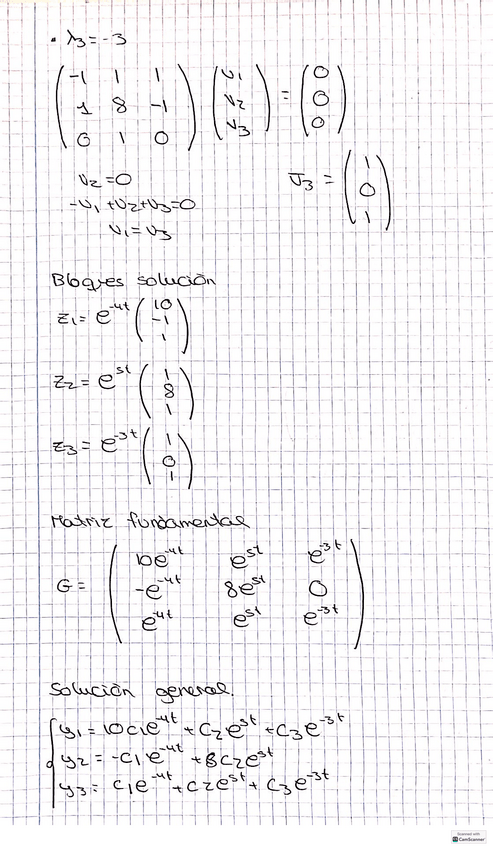 • λ₃ = -3
( -1 1 1 ) ( v₁ ) = ( 0 )
( 1 8 -1 ) ( v₂ ) ( 0 )
( 0 1 0 ) ( v₃ ) ( 0 )
v₂ = 0
-v₁ + v₂ + v₃ = 0
v₁ = v₃
v̄₃ = ( 1 )
( 0 )
( 1 )
Bloques solución
z₁ = e^-4t ( 10 )
( -1 )
( 1 )
z₂ = e^5t ( 1 )
( 8 )
( 1 )
z₃ = e^-3t ( 1 )
( 0 )
( 1 )
Matriz fundamental
G = ( 10e^-4t e^5t e^-3t )
( -e^-4t 8e^5t 0 )
( e^-4t e^5t e^-3t )
Solución general.
y₁ = 10c₁e^-4t + c₂e^5t + c₃e^-3t
y₂ = -c₁e^-4t + 8c₂e^5t
y₃ = c₁e^-4t + c₂e^5t + c₃e^-3t
Scanned with
CS CamScanner